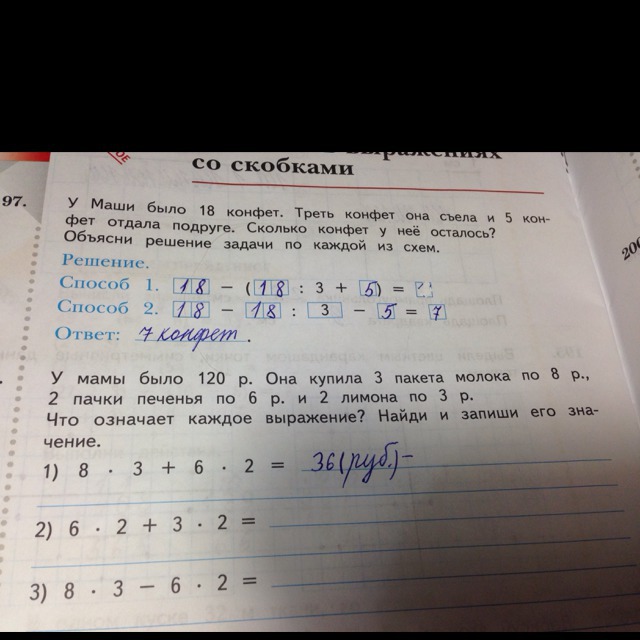 со скобками
97.
У Маши было 18 конфет. Треть конфет она съела и 5 кон-
фет отдала подруге. Сколько конфет у неё осталось?
Объясни решение задачи по каждой из схем.
Решение.
Способ 1. 18 − (18 : 3 + 5) =
Способ 2. 18 − 18 : 3 − 5 = 7
Ответ: 7 конфет.
У мамы было 120 р. Она купила 3 пакета молока по 8 р.,
2 пачки печенья по 6 р. и 2 лимона по 3 р.
Что означает каждое выражение? Найди и запиши его зна-
чение.
1) 8 · 3 + 6 · 2 = 36 (руб.) −
2) 6 · 2 + 3 · 2 =
3) 8 · 3 − 6 · 2 =